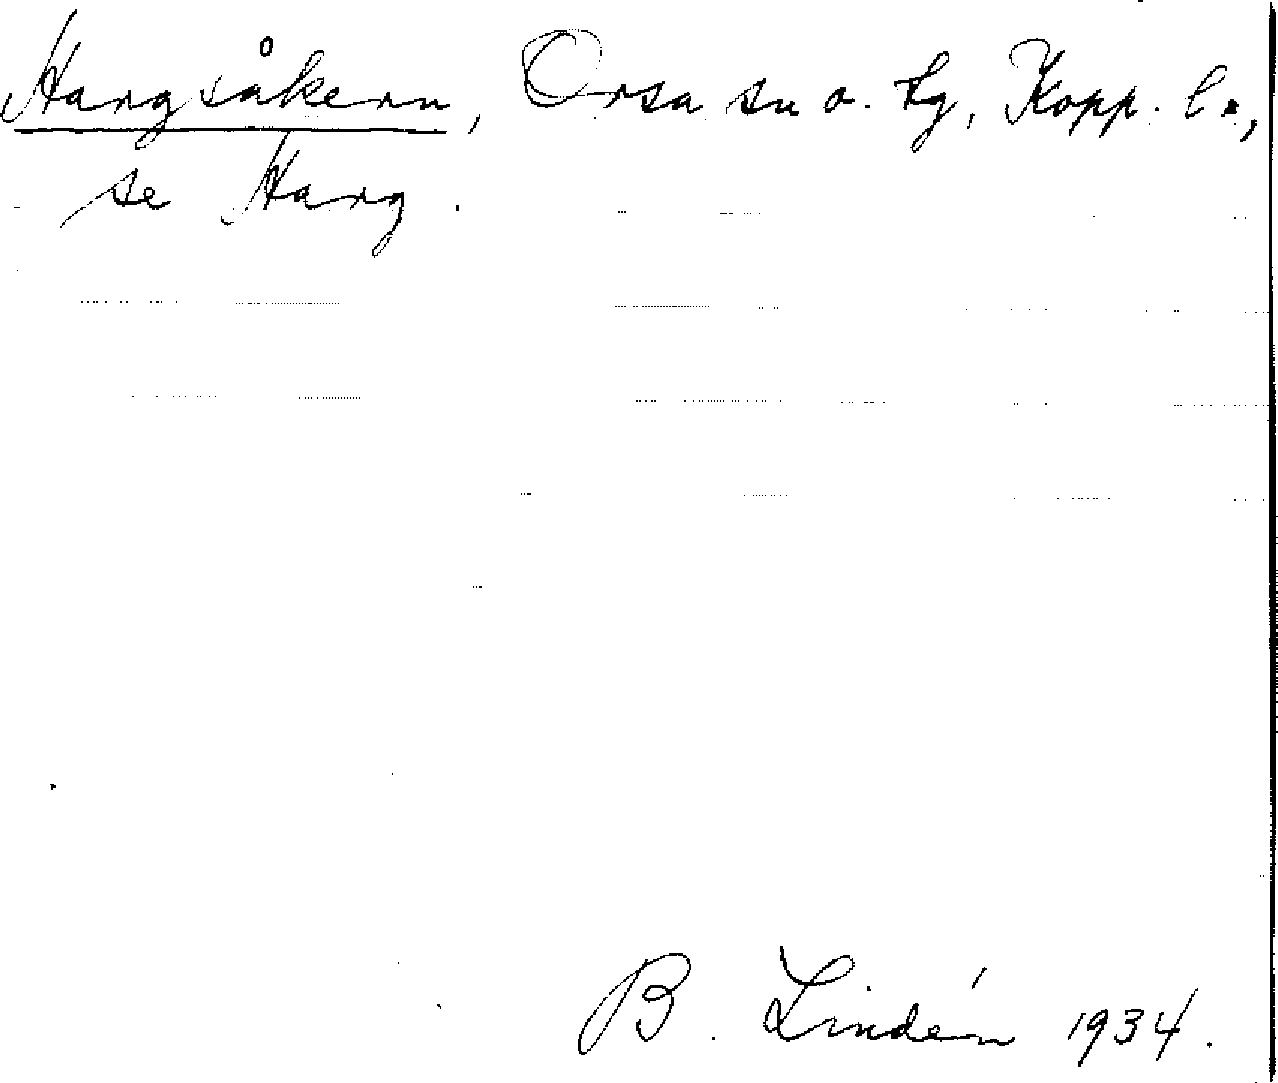 Hangsåkern, Orsa sn o. tg, Kopp. l.,
se Hang.
B. Lindén 1934.